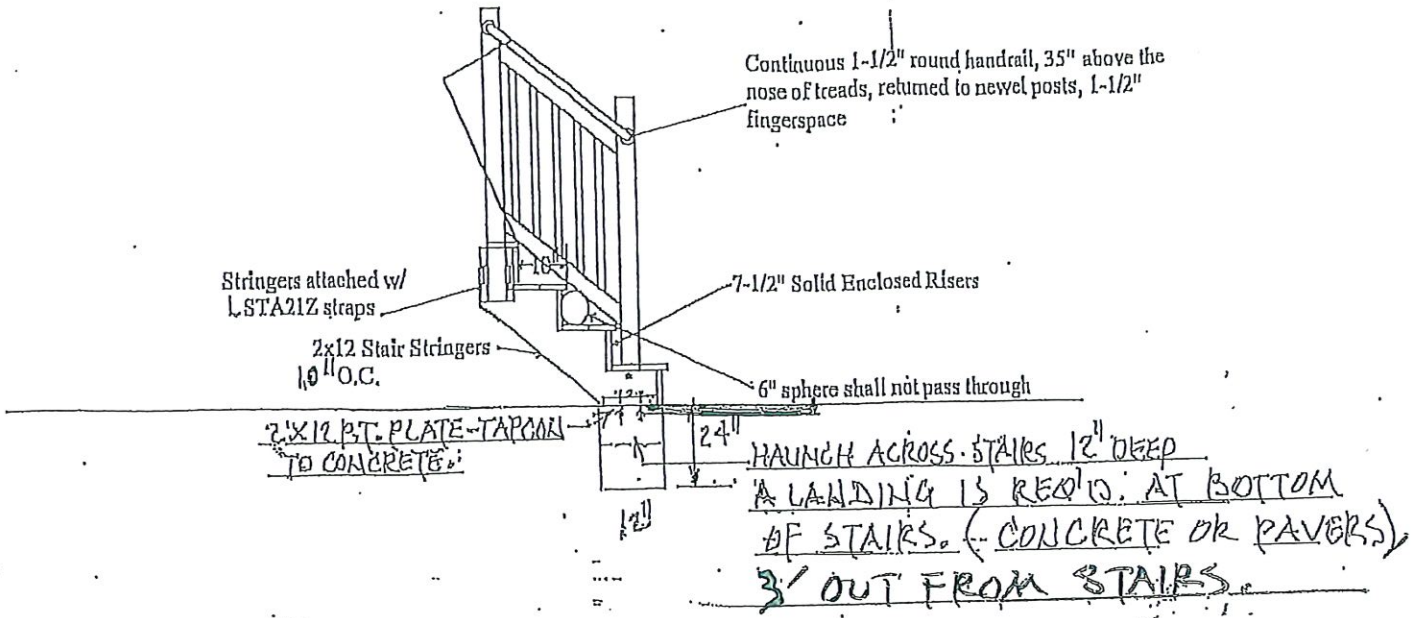 Continuous 1-1/2" round handrail, 35" above the
nose of treads, returned to newel posts, 1-1/2"
fingerspace
Stringers attached w/
LSTA21Z straps
10
7-1/2" Solid Enclosed Risers
2x12 Stair Stringers
10" O.C.
6" sphere shall not pass through
2"X12 P.T. PLATE-TAPCON
TO CONCRETE.
24"
12"
HAUNCH ACROSS STAIRS 12" DEEP
A LANDING IS REQ'D. AT BOTTOM
OF STAIRS. (CONCRETE OR PAVERS)
3' OUT FROM STAIRS.